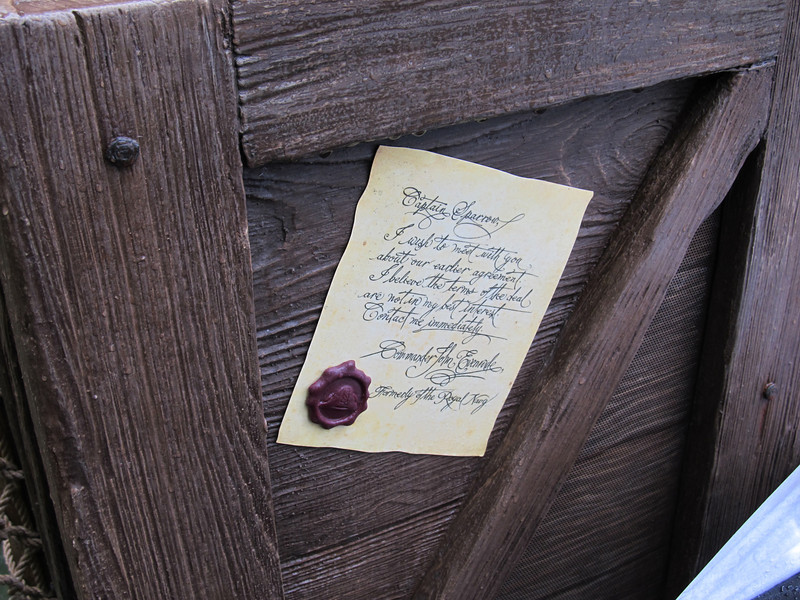 Captain Sparrow,
I wish to meet with you
about our earlier agreement.
I believe the terms of the deal
are not in my best interest.
Contact me immediately.
Commander John
Formerly of the Royal Navy